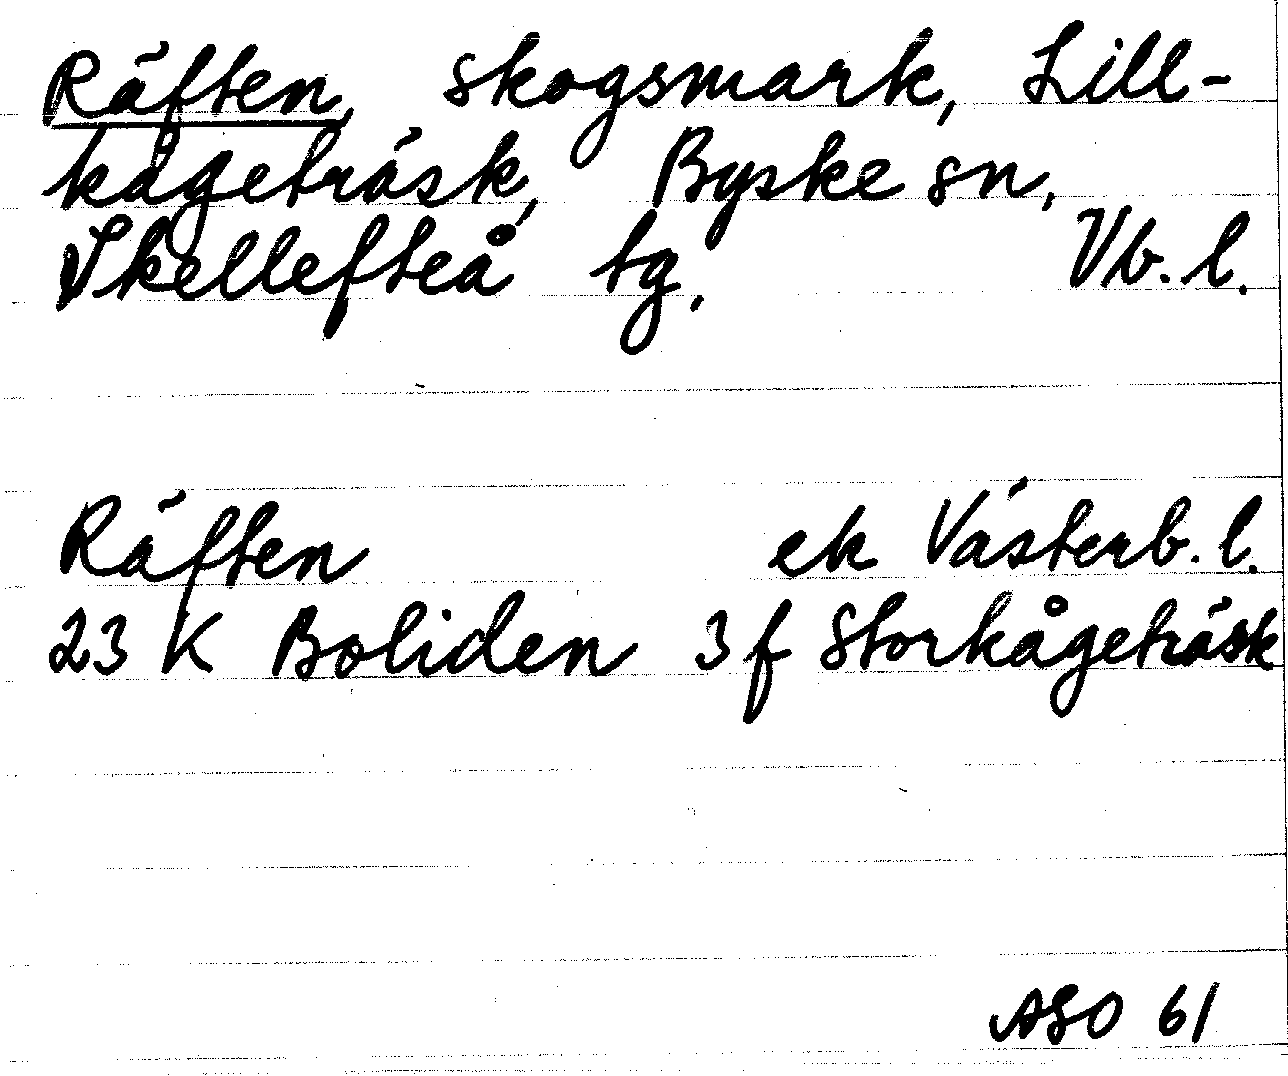 Räften, skogsmark, Lill-
kågeträsk, Byske sn,
Skellefteå tg. Vb. l.
Räften ek Västerb. l.
23 K Boliden 3 f Storkågeträsk
ASO 61